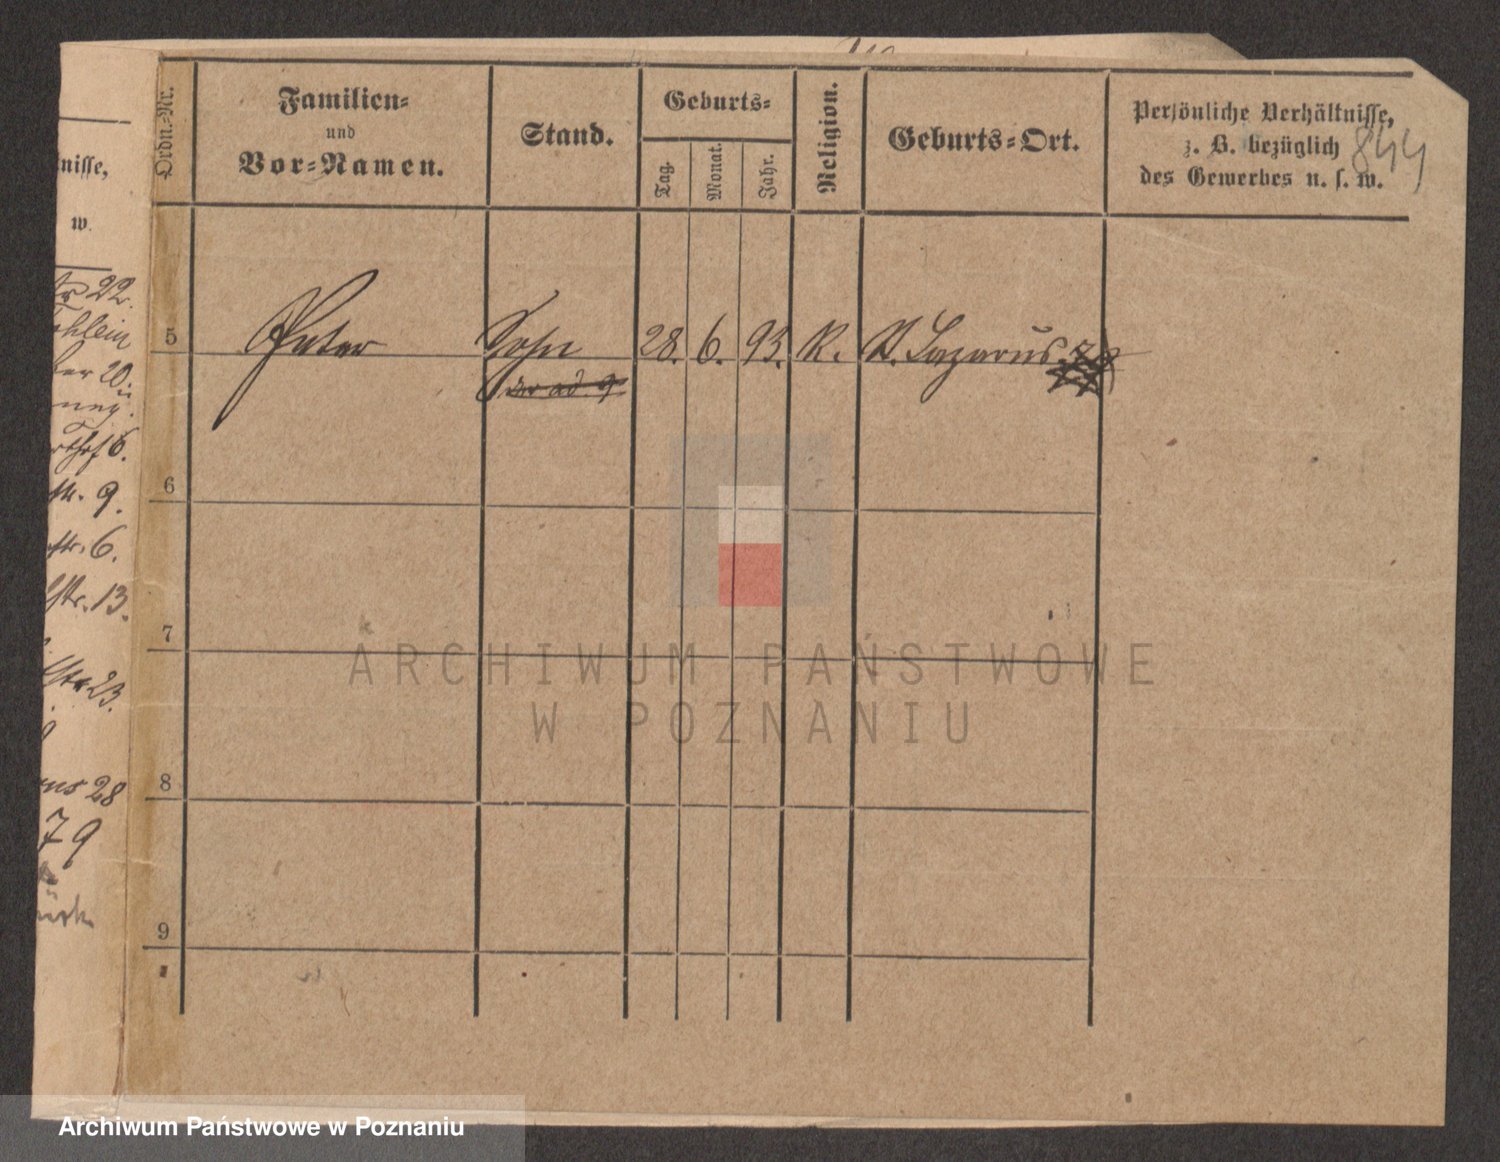 Ordn.-Nr.
Familien-
und
Vor-Namen.
Stand.
Geburts-
Tag.
Monat.
Jahr.
Religion.
Geburts-Ort.
Persönliche Verhältnisse,
z. B. bezüglich
des Gewerbes u. s. w.
844
5 Peter Sohn 28. 6. 93. K. St. Lazarus
6
7
8
9
nisse,
w.
22.
20.
6.
9.
str. 6.
str. 13.
23.
28
79
ARCHIWUM PAŃSTWOWE
W POZNANIU
Archiwum Państwowe w Poznaniu